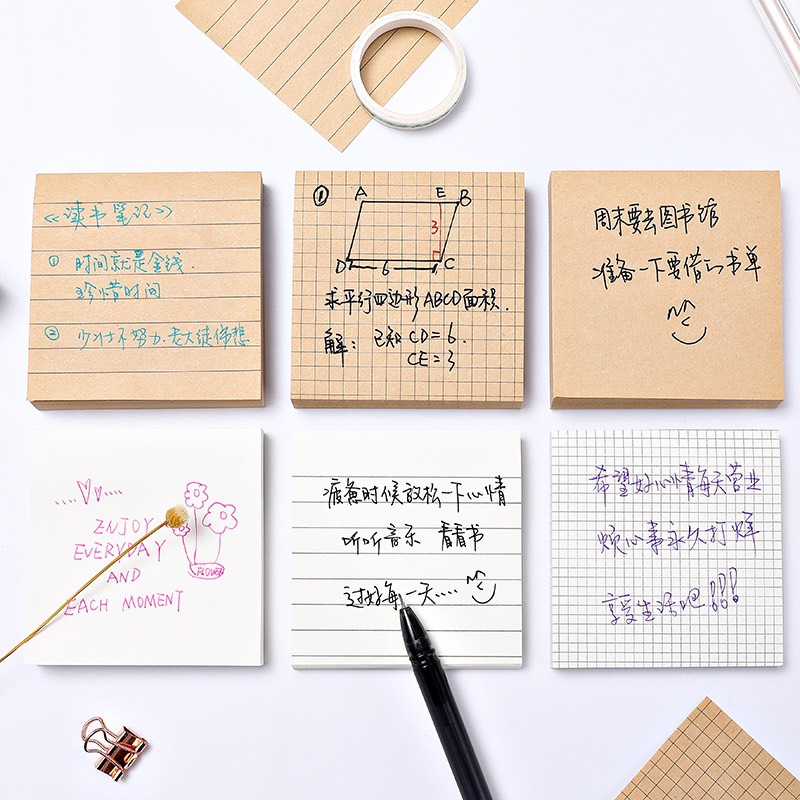 《读书笔记》
① 时间就是金钱.
珍惜时间
② 少壮不努力.老大徒伤悲
① A E B
3
D 6 C
求平行四边形ABCD面积.
解: 已知 CD=6.
CE=3
周末要去图书馆
准备一下要借的书单
....♡♡....
ENJOY
EVERYDAY
AND
EACH MOMENT
FLOWER
疲惫时候放松一下心情
听听音乐 看看书
过好每一天....
希望好心情每天营业
烦心事永久打烊
享受生活吧!!!